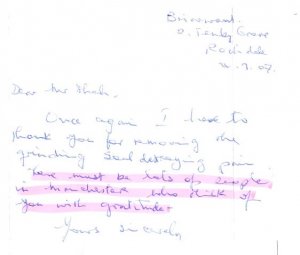 Grove
Rochdale
Dear Mr Shah.
Once again I have to
thank you for removing the
grinding soul destroying pain.
There must be lots of people
in Manchester who think of
you with gratitude.
Yours sincerely